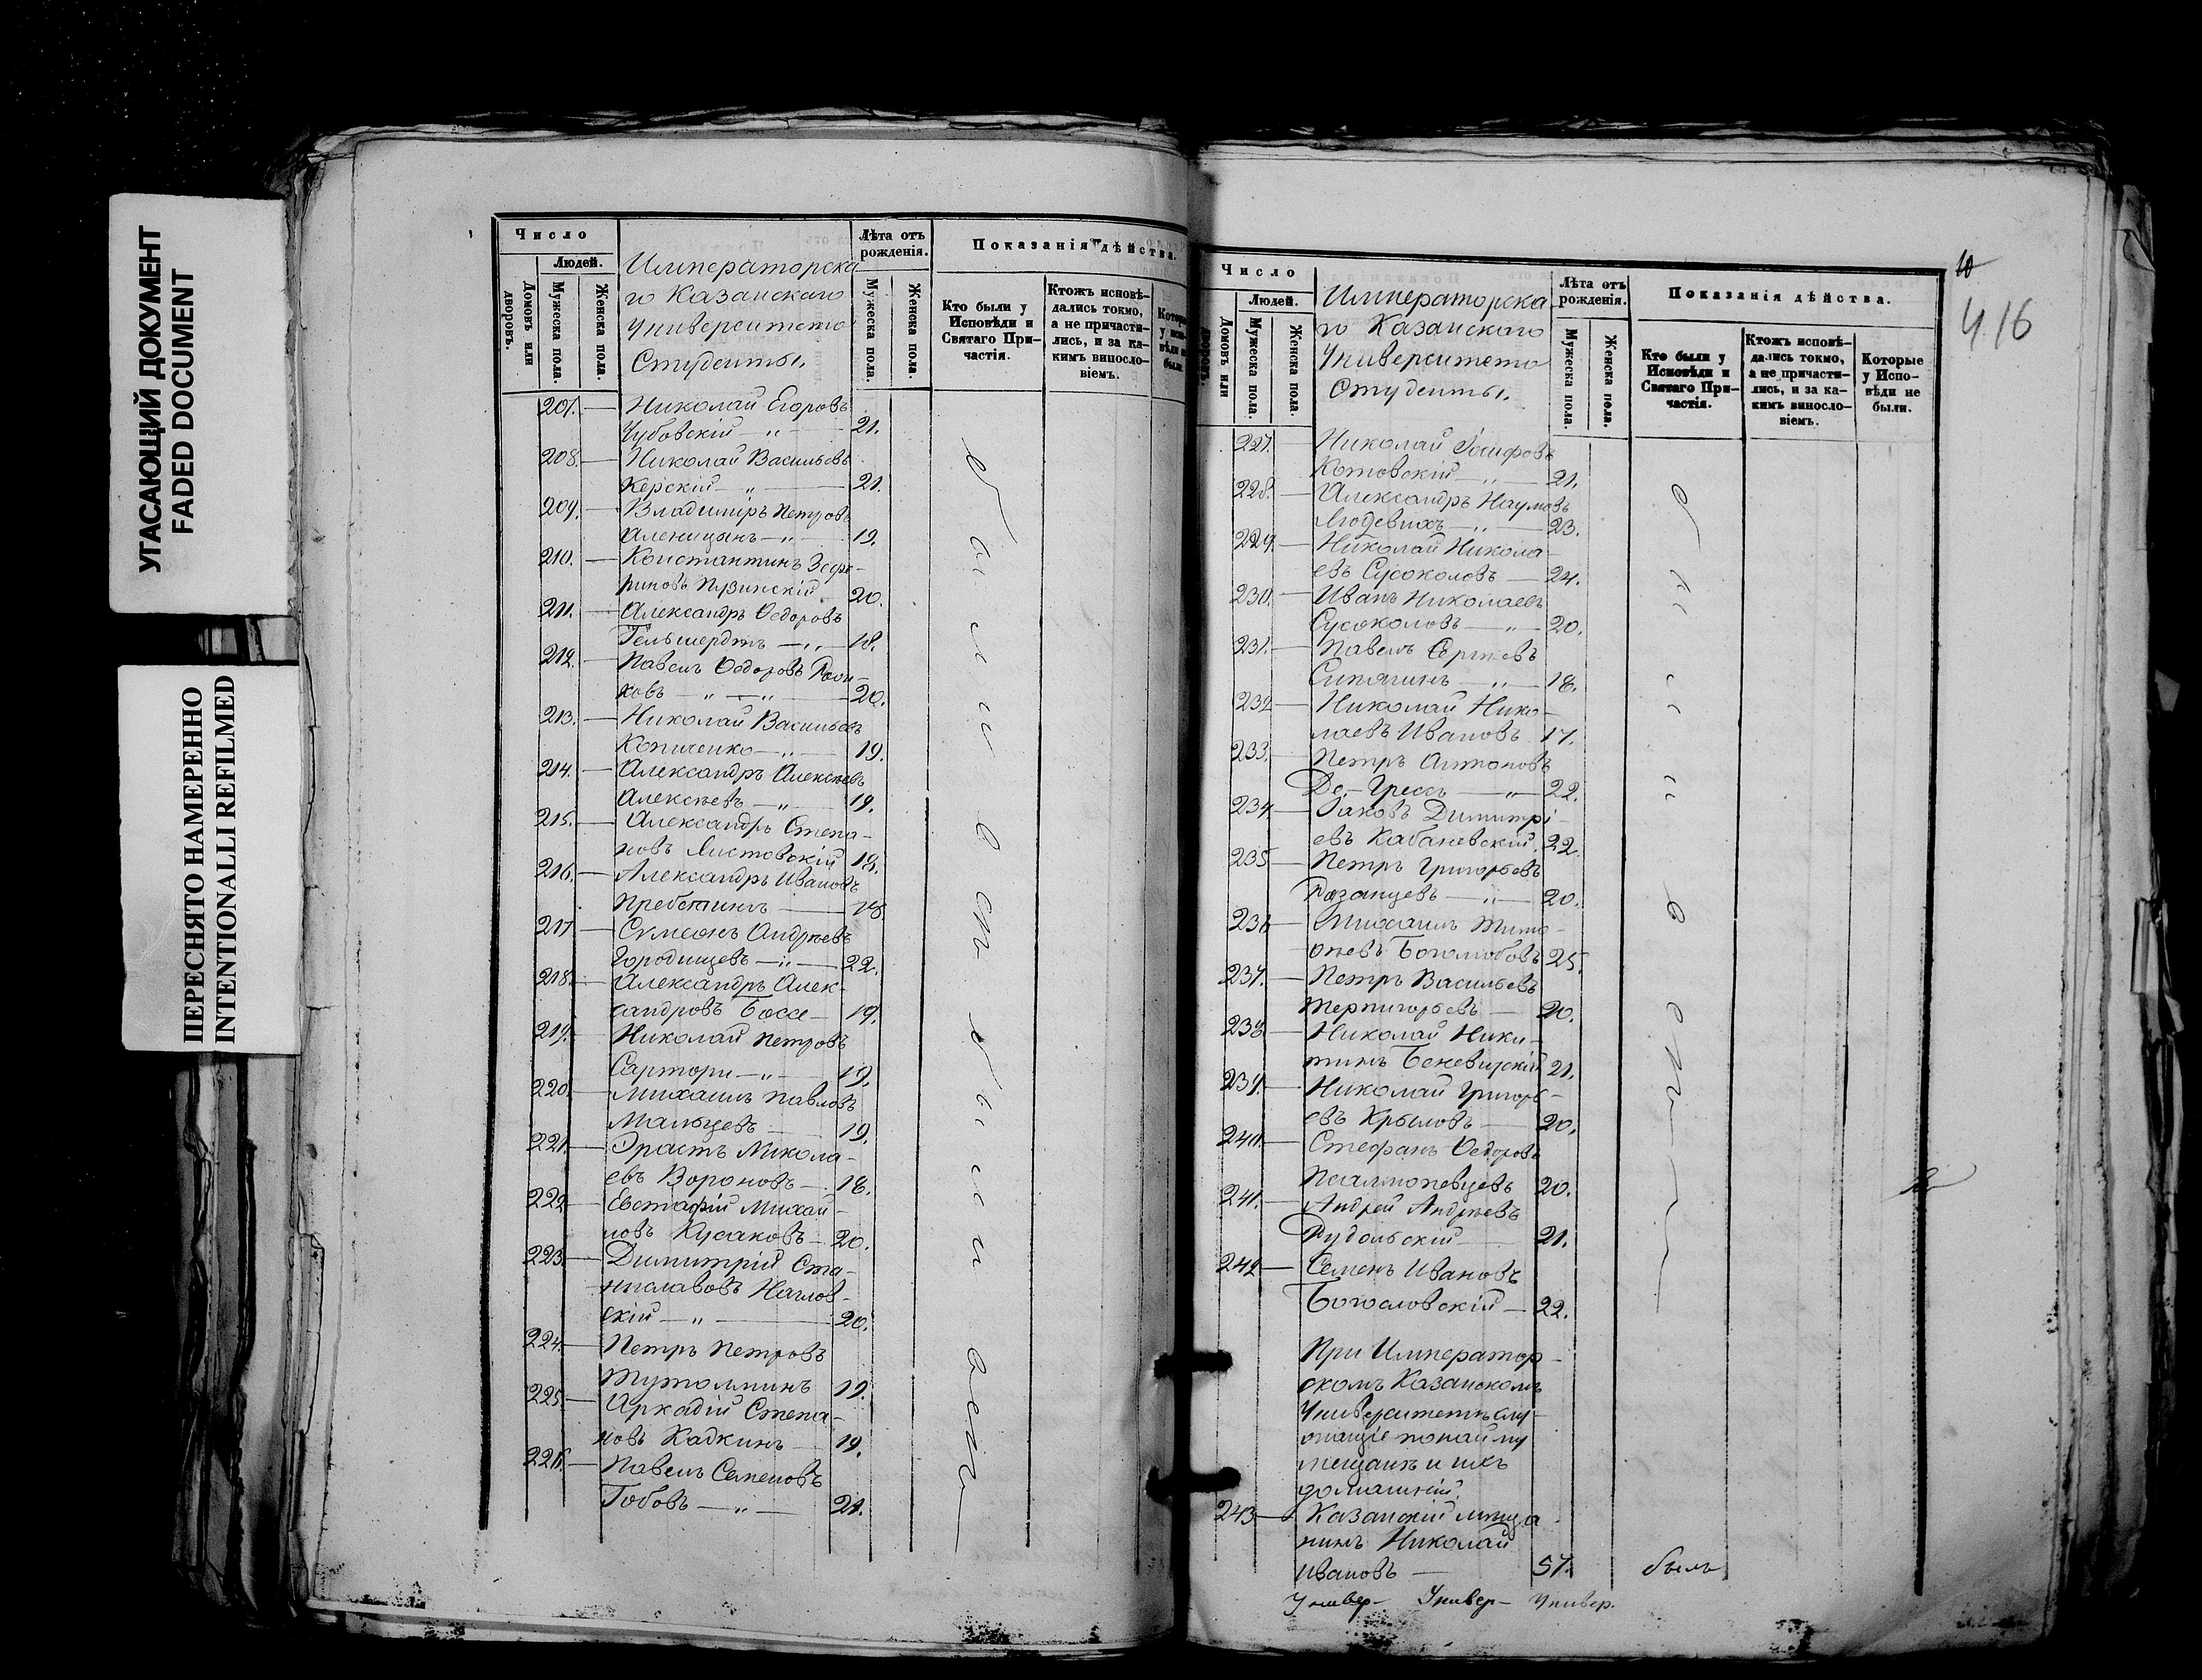 УГАСАЮЩИЙ ДОКУМЕНТ
FADED DOCUMENT
ПЕРЕСНЯТО НАМЕРЕННО
INTENTIONALLI REFILMED
Число
Людей.
Домовъ или дворовъ.
Мужеска пола.
Женска пола.
Императорска
го Казанскаго
Университета
Студенты.
Лѣта отъ
рожденія.
Мужеска пола.
Женска пола.
Показанія дѣйства.
Кто были у
Исповѣди и
Святаго При-
частія.
Ктожъ исповѣ-
дались токмо,
а не причасти-
лись, и за ка-
кимъ винсло-
віемъ.
207. — Николай Егоровъ
Чубовскій — „ — 21.
208. — Николай Васильевъ
Керскій — „ — 21.
209. — Владиміръ Петровъ
Аленицынъ — „ 19.
210. — Константинъ Зефи-
риновъ Пузинскій 20.
211. — Александръ Ѳедоровъ
Гельшердтъ — „ — 18.
212. — Павелъ Ѳедоровъ
ковъ — „ — „ — 20.
213. — Николай Васильевъ
Копиченко — „ 19.
214. — Александръ Алексѣевъ
Алексѣевъ — „ 19.
215. — Александръ Степа-
новъ Листовскій 18.
216. — Александръ Ивановъ
— 18
217 — Сѵмеонъ Андреевъ
Городищевъ — „ — 22.
218. — Александръ Алек-
сандровъ Боссе — 19.
219. — Николай Петровъ
Сартори — „ 19.
220. — Михаилъ Павловъ
Мальцевъ 19.
221. — Эрастъ Никола-
евъ Вороновъ — 18.
222 — Евстафій Михай-
ловъ Кусаковъ — 20.
223. — Димитрій Ста-
ниславовъ Наглов-
скій — „ 20.
224. — Петръ Петровъ
Тутолминъ 19.
225. — Аркадій Степа-
новъ Кадкинъ — 19.
226. — Павелъ Семеновъ
Гобовъ — „ — 21.
были
о
т
были
Число
Людей.
Домовъ или дворовъ.
Мужеска пола.
Женска пола.
Императорска
го Казанскаго
Университета
Студенты.
Лѣта отъ
рожденія.
Мужеска пола.
Женска пола.
Показанія дѣйства.
Кто были у
Исповѣди и
Святаго При-
частія.
Ктожъ исповѣ-
дались токмо,
а не причасти-
лись, и за ка-
кимъ винсло-
віемъ.
Которые
у Испо-
вѣди не
были.
10
416
227. Николай Іосифовъ
Котовскій — „ — 21.
228. — Александръ Наумовъ
— „ — 23.
229. — Николай Никола-
евъ Сусоколовъ — 24.
230. — Иванъ Николаевъ
Сусоколовъ — „ — 20.
231. — Павелъ Сергѣевъ
Сипягинъ — „ — 18.
232 — Николай Нико-
лаевъ Ивановъ 17.
233. — Петръ Антоновъ
Де-Грессъ — „ — 22.
234 — Іаковъ Димитрі-
евъ Кабаневскій. 22.
235 — Петръ Григорьевъ
Рязанцевъ — „ — 20.
236 — Михаилъ Тимо-
ѳеевъ Боголюбовъ 25.
237. — Петръ Васильевъ
Терпигорьевъ — 20.
238. — Николай Ники-
тинъ 21.
239. — Николай Григорь-
евъ Крыловъ — 20.
240. — Стефанъ Ѳедоровъ
Псалмопевцевъ 20.
241. — Андрей Андреевъ
Рудольскій — 21.
242 — Семенъ Ивановъ
Богословскій — 22.
При Император-
скомъ Казанскомъ
Университетѣ слу-
жащіе по найму
мещане и ихъ
домашніи.
243 — Казанскій меща-
нинъ Николай
Ивановъ — 57. былъ
Универ- Универ- Универ.